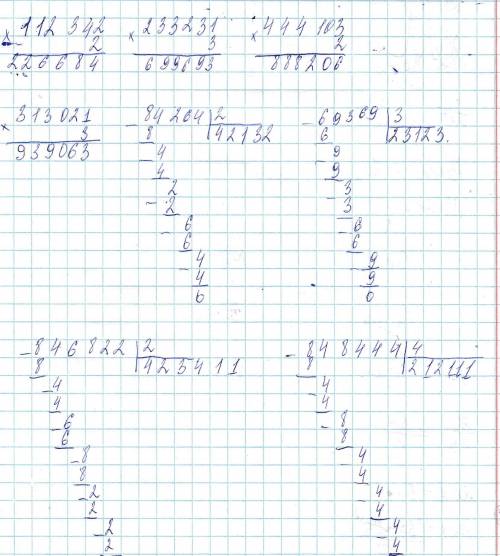 × 112 342 × 233231 × 444 103
2 3 2
226684 699693 888206
× 313021 - 84264 | 2 - 69369 | 3
3 8 42132 6 23123.
939063 - 4 - 9
4 9
- 2 - 3
2 3
- 6 - 6
6 6
- 4 - 9
4 9
0 0
- 846822 | 2 - 848444 | 4
8 423411 8 212111
- 4 - 4
4 4
- 6 - 8
6 8
- 8 - 4
8 4
- 2 - 4
2 4
- 2 - 4
2 4